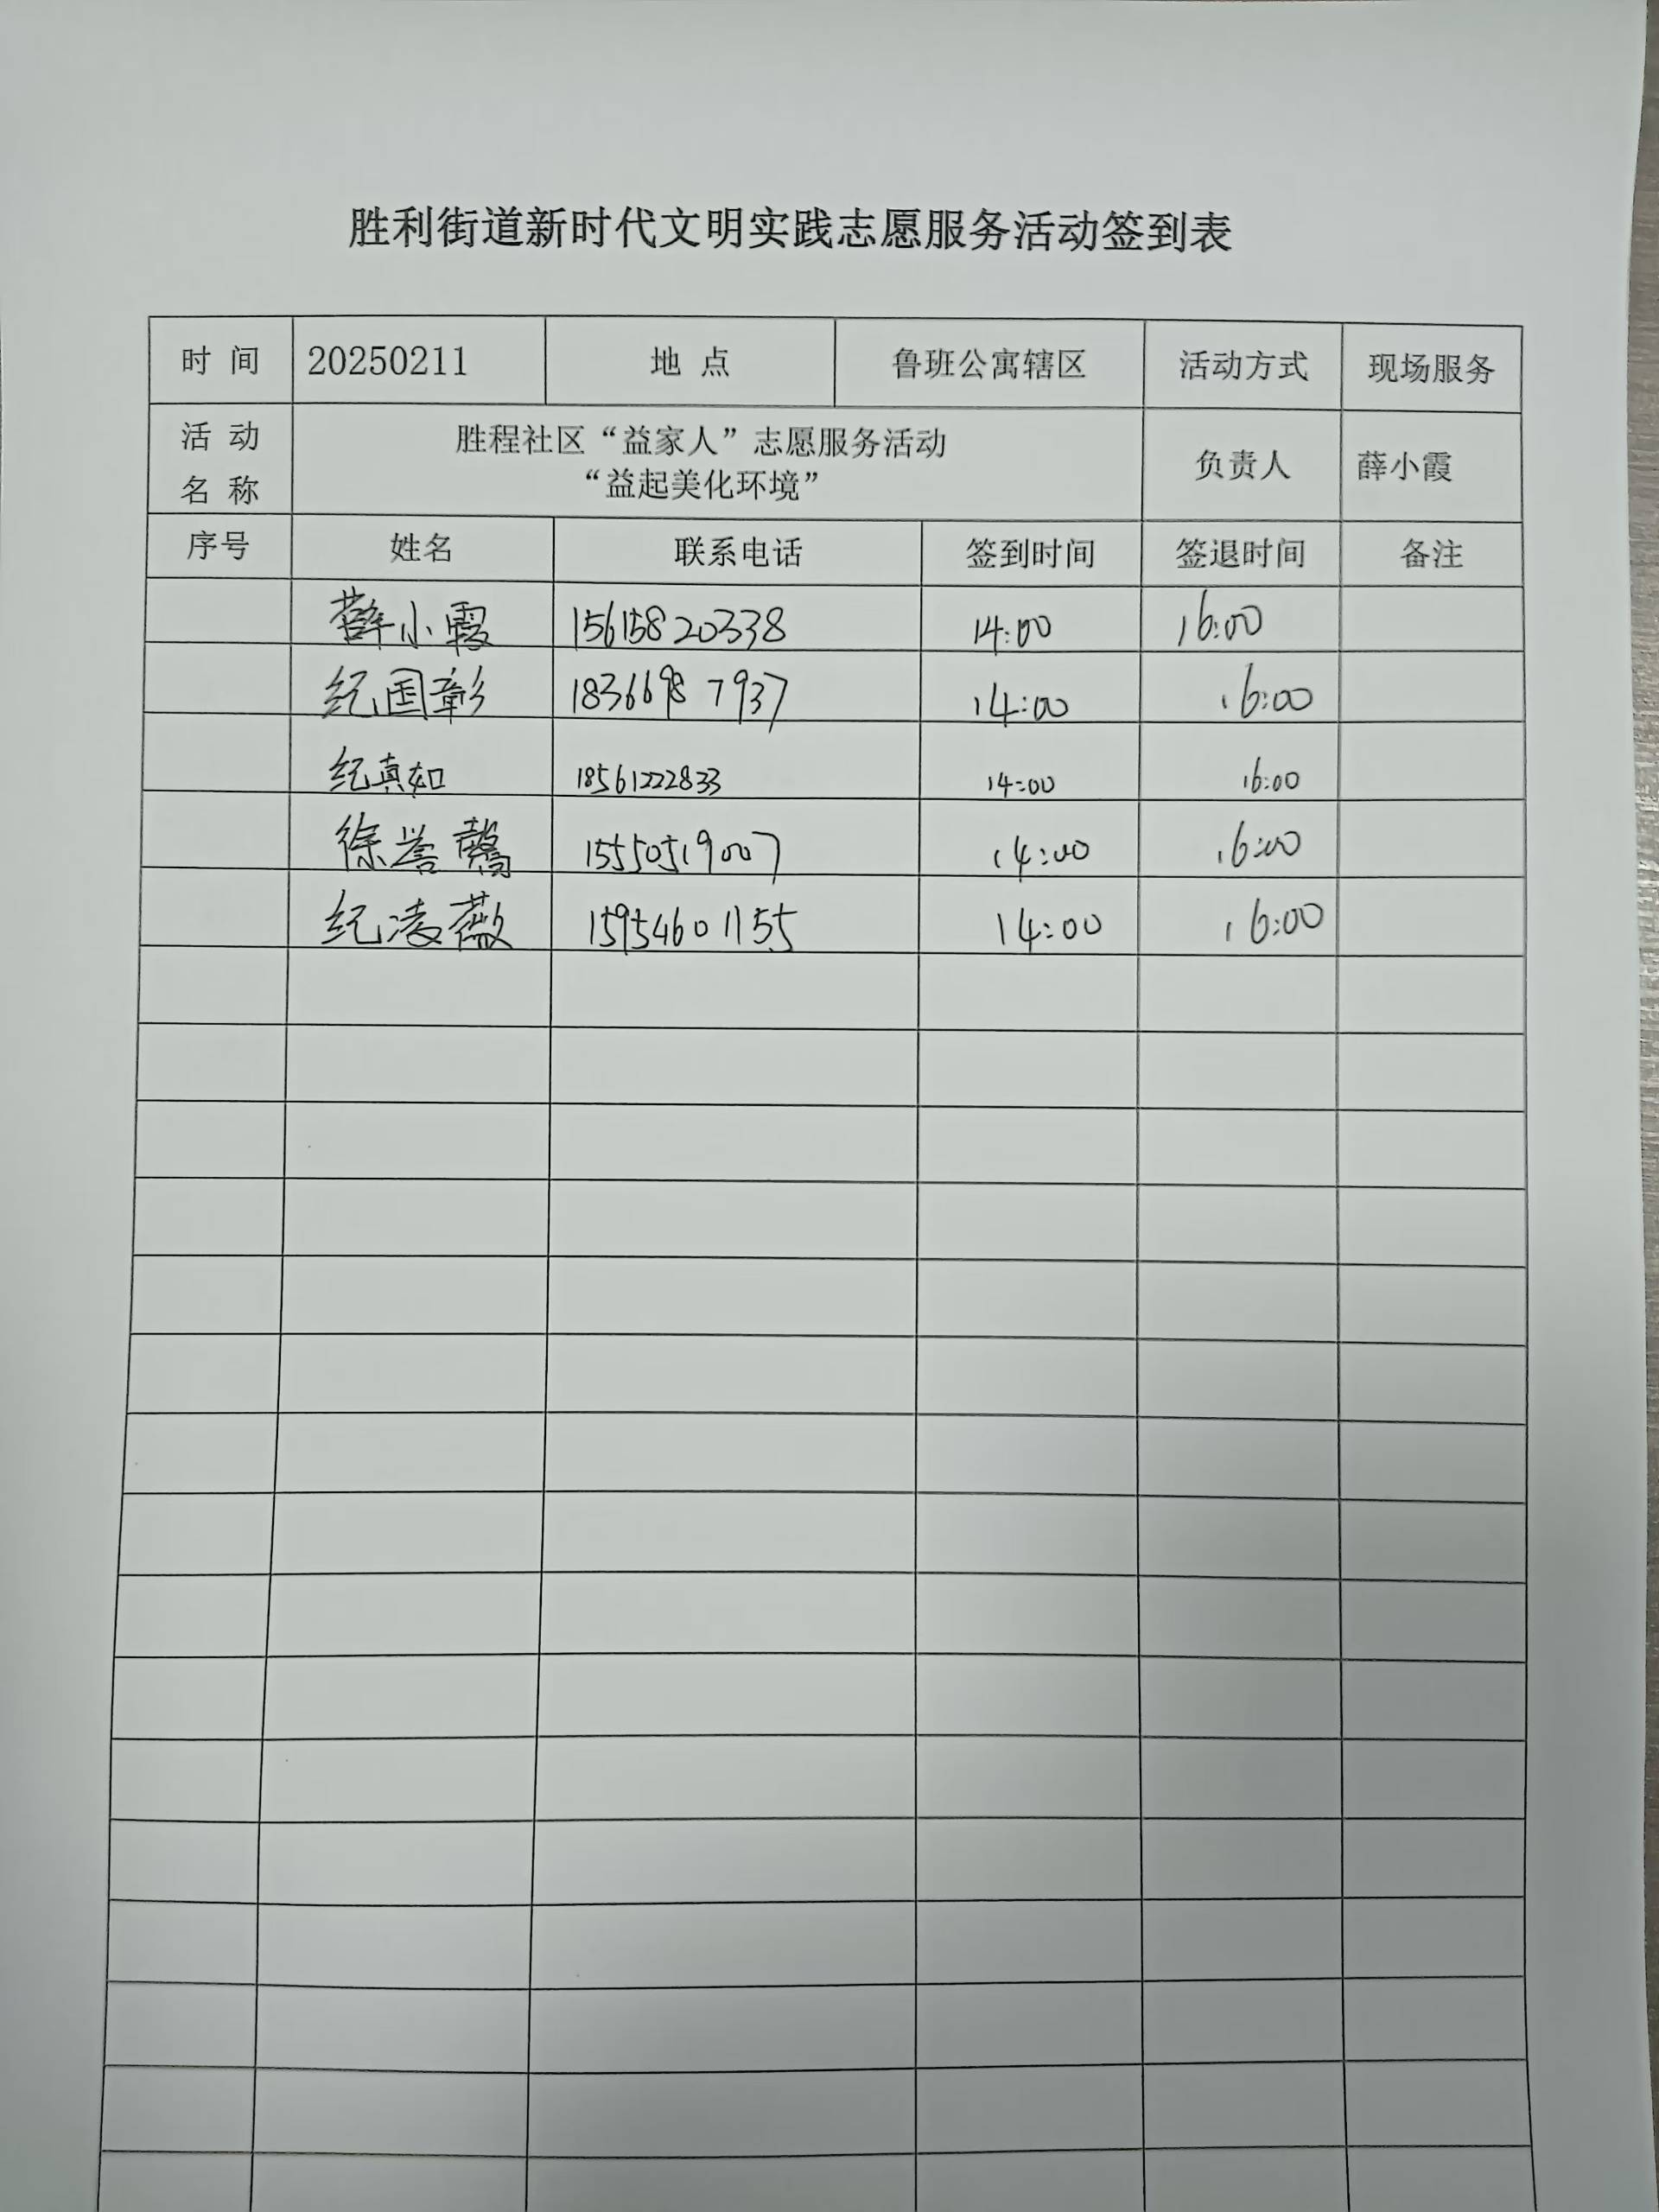 胜利街道新时代文明实践志愿服务活动签到表
时 间 20250211 地 点 鲁班公寓辖区 活动方式 现场服务
活 动 名 称 胜程社区“益家人”志愿服务活动 “益起美化环境” 负责人 薛小霞
序号 姓名 联系电话 签到时间 签退时间 备注
薛小霞 15615820338 14:00 16:00
纪国彰 18366987937 14:00 16:00
纪真如 18561222833 14:00 16:00
徐誉馨 15550519007 14:00 16:00
纪凌薇 15954601155 14:00 16:00